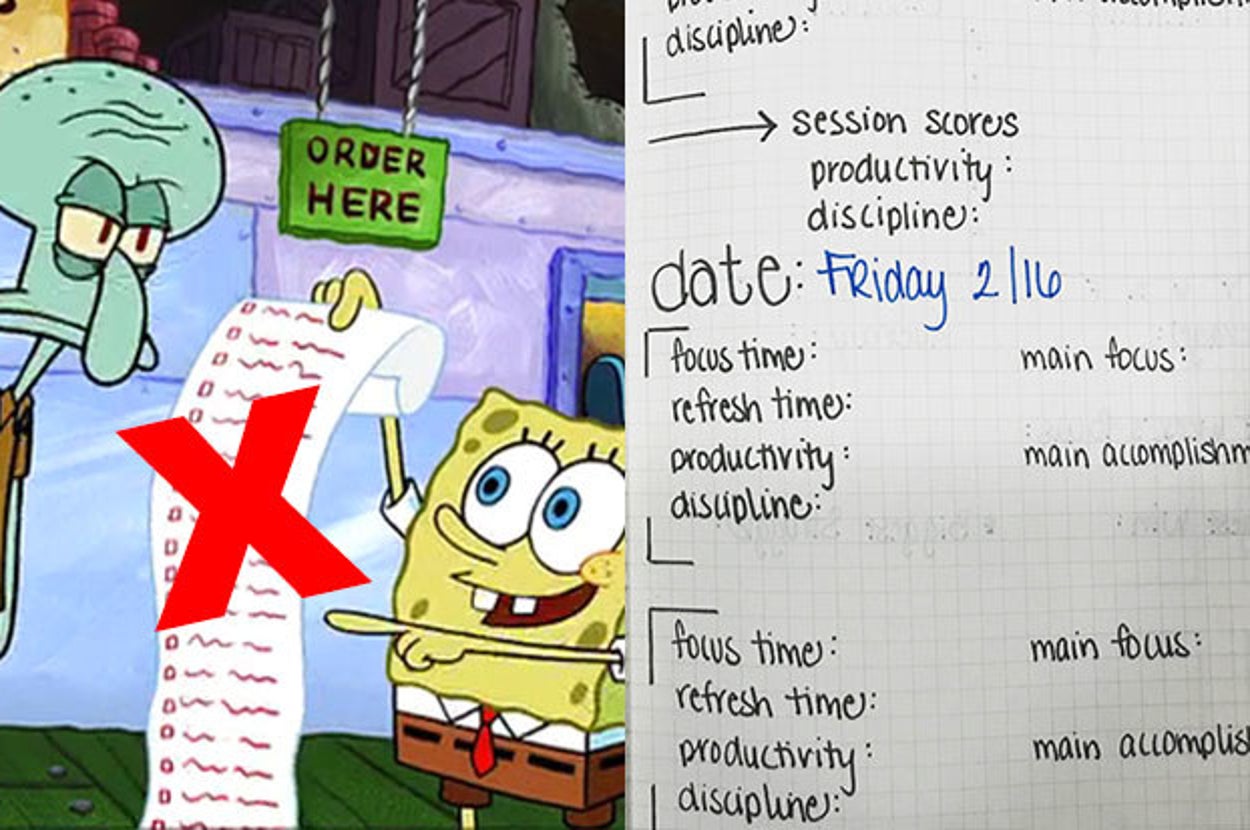 ORDER
HERE
discipline:
session scores
productivity:
discipline:
date: Friday 2/16
focus time:
main focus:
refresh time:
productivity:
main accomplishm
discipline:
focus time:
main focus:
refresh time:
productivity:
main accomplis
discipline: